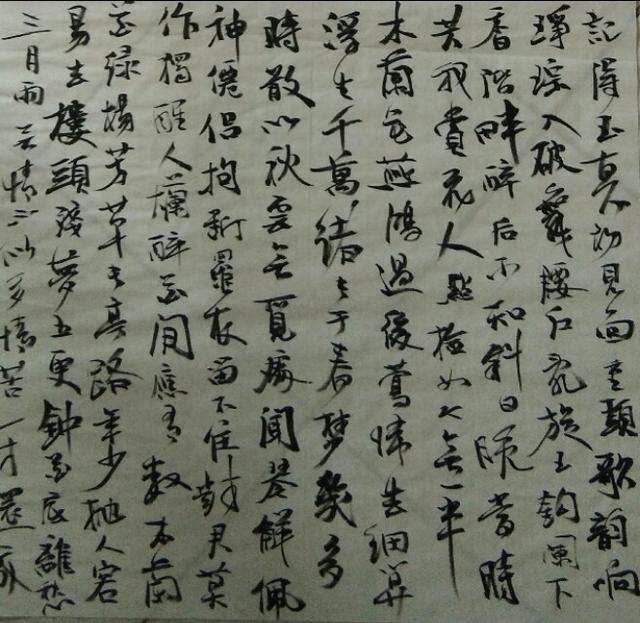 記得玉真初見面重頭歌韵响
琤琮入破舞腰红乱旋玉鈎闌下
香階畔醉后不知斜日晚當時
共我賞花人點檢如今無一半
木蘭花燕鴻過後鶯歸去細算
浮生千萬緒長于春夢幾多
時散似秋雲無覓處聞琴解佩
神僊侣挽断羅衣留不住勸君莫
作獨醒人爛醉花間應有數木蘭
花绿楊芳草長亭路年少抛人容
易去樓頭殘夢五更鐘花底離愁
三月雨無情不似多情苦一寸還成